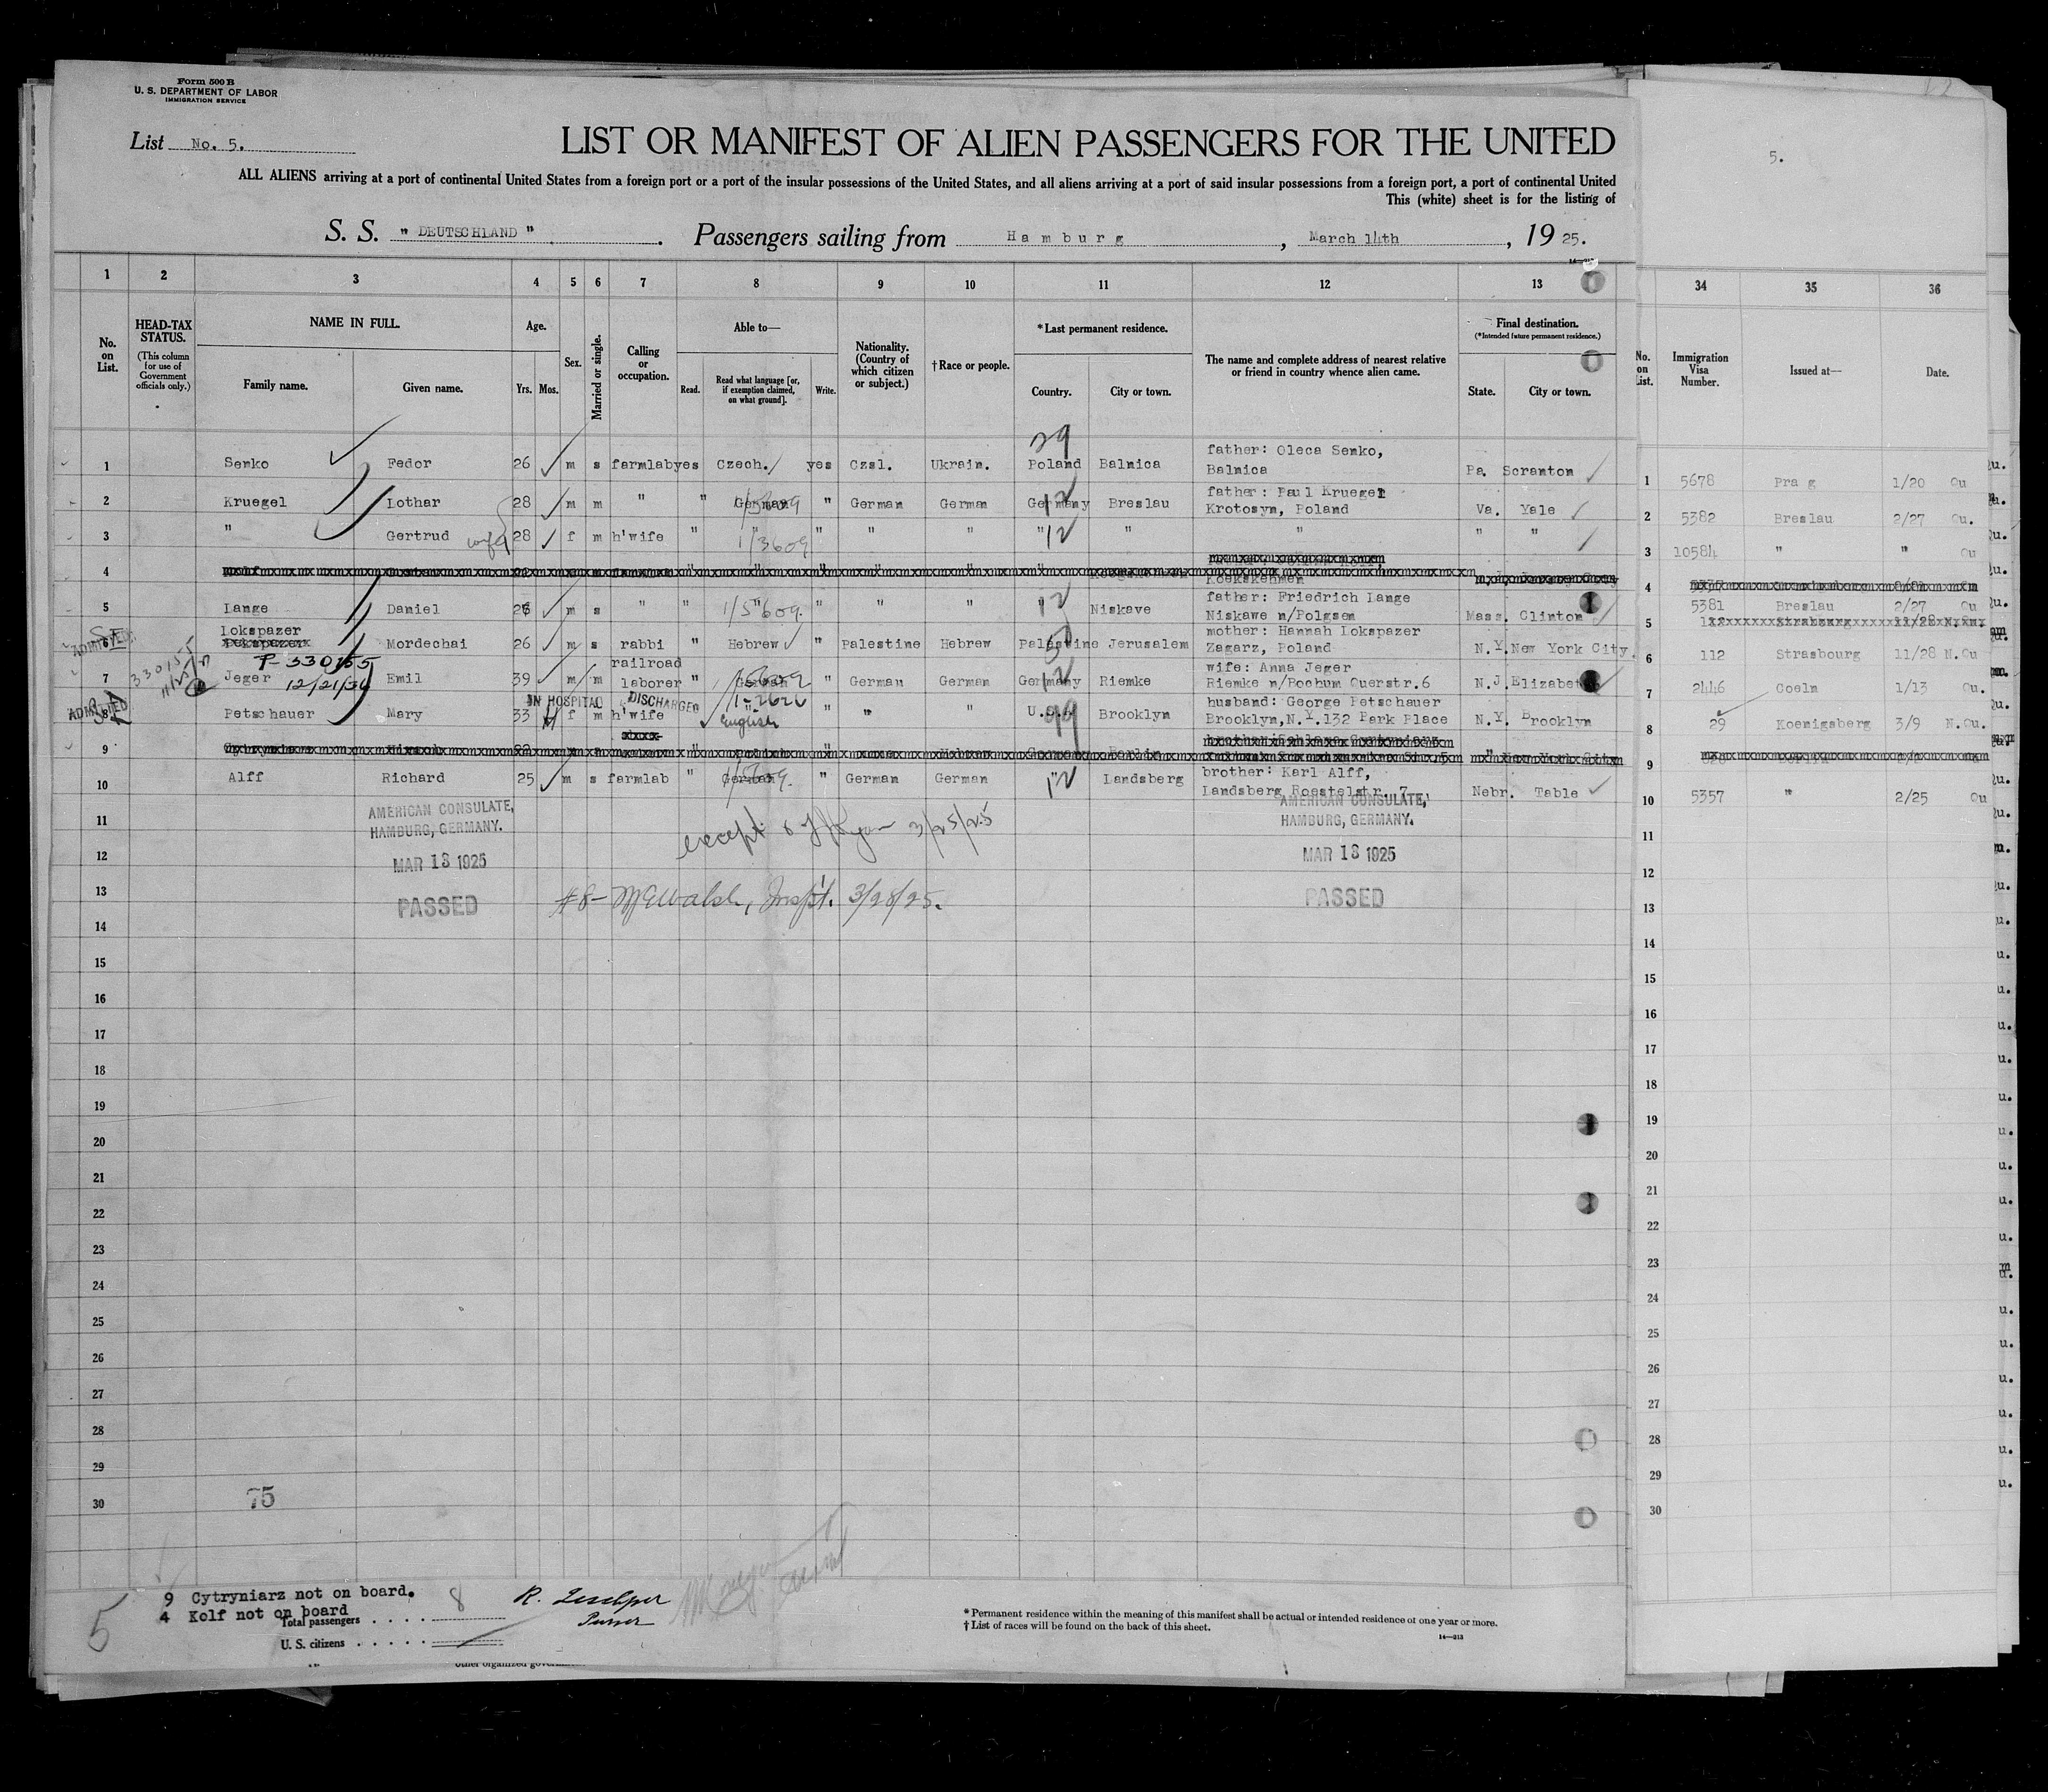 Form 500 B
U. S. DEPARTMENT OF LABOR
IMMIGRATION SERVICE
List No. 5.
LIST OR MANIFEST OF ALIEN PASSENGERS FOR THE UNITED
5.
ALL ALIENS arriving at a port of continental United States from a foreign port or a port of the insular possessions of the United States, and all aliens arriving at a port of said insular possessions from a foreign port, a port of continental United
This (white) sheet is for the listing of
S. S. " DEUTSCHLAND ". Passengers sailing from Hamburg, March 14th, 19 25.
1 2 3 4 5 6 7 8 9 10 11 12 13 34 35 36
No. on List.
HEAD-TAX STATUS.
(This column for use of Government officials only.)
NAME IN FULL.
Family name. Given name.
Age.
Yrs. Mos.
Sex.
Married or single.
Calling or occupation.
Able to—
Read. Read what language [or, if exemption claimed, on what ground]. Write.
Nationality. (Country of which citizen or subject.)
†Race or people.
*Last permanent residence.
Country. City or town.
The name and complete address of nearest relative or friend in country whence alien came.
Final destination.
(*Intended future permanent residence.)
State. City or town.
No. on List.
Immigration Visa Number.
Issued at—
Date.
29
father: Oleca Semko,
1 Semko Fedor 26 m s farmlab yes Czech. yes Czsl. Ukrain. Poland Balnica Balnica Pa. Scranton 1 5678 Prag 1/20 Qu
father: Paul Kruegel
2 Kruegel Lothar 28 m m " " German " German German Germany Breslau Krotosyn, Poland Va. Yale 2 5382 Breslau 2/27 Qu.
3 " Gertrud wife 28 f m h'wife " " " " " " 12 " " " " 3 10584 " " Qu
1/3609
4 Koekskehmen 4
father: Friedrich Lange
5 Lange Daniel 26 m s " " " 1/5609. " " " " 12 Niskave Niskawe n/Polgsem Mass. Clinton 5381 Breslau 2/27 Qu
5
Lokspazer mother: Hannah Lokspazer
ADMITTED 6 Mordechai 26 m s rabbi " Hebrew " Palestine Hebrew Palestine Jerusalem Zagarz, Poland N.Y. New York City. 6 112 Strasbourg 11/28 N.Qu
P-330155 railroad wife: Anna Jeger
330155
7 Jeger 12/21/34 Emil 39 m m laborer " German " German German Germany Riemke Riemke n/Bochum Querstr.6 N.J. Elizabeth 7 2446 Coeln 1/13 Qu.
IN HOSPITAL DISCHARGED 1-2626 husband: George Petschauer
ADMITTED 8 Petschauer Mary 33 f m h'wife " English " " " U.S.A. 99 Brooklyn Brooklyn,N.Y.132 Park Place N.Y. Brooklyn 8 29 Koenigsberg 3/9 N.Qu.
9 9
brother: Karl Alff,
10 Alff Richard 25 m s farmlab " German " German German " 12 Landsberg Landsberg Roestelstr. 7 Nebr. Table 10 5357 " 2/25 Qu
AMERICAN CONSULATE, HAMBURG, GERMANY. MAR 13 1925 PASSED
AMERICAN CONSULATE, HAMBURG, GERMANY. MAR 13 1925 PASSED
except 3/25/25
#8- Walsh, Insp't. 3/28/25.
11 11
12 12
13 13
14 14
15 15
16 16
17 17
18 18
19 19
20 20
21 21
22 22
23 23
24 24
25 25
26 26
27 27
28 28
29 29
30 30
75
9 Cytryniarz not on board.
4 Kolf not on board
5
Total passengers . . . . 8
U. S. citizens . . . . .
Purser
* Permanent residence within the meaning of this manifest shall be actual or intended residence of one year or more.
† List of races will be found on the back of this sheet.
14—313